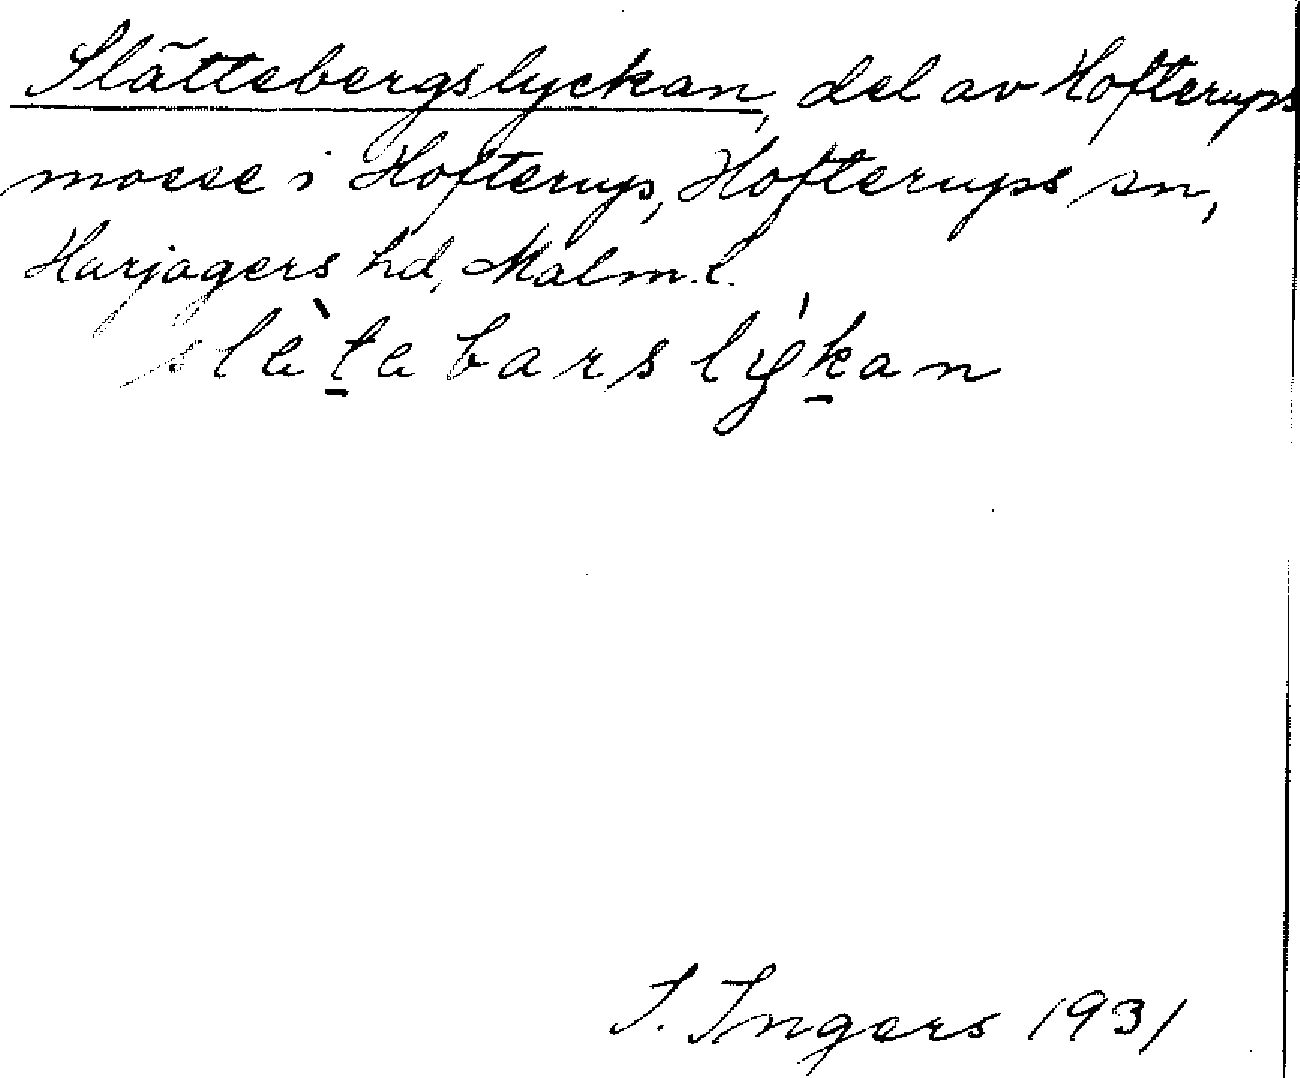 Slättebergslyckan, del av Hofterups
mosse i Hofterup, Hofterups sn,
Harjagers hd, Malm. l.
slèt̲abarslýk̲an
I. Ingers 1931